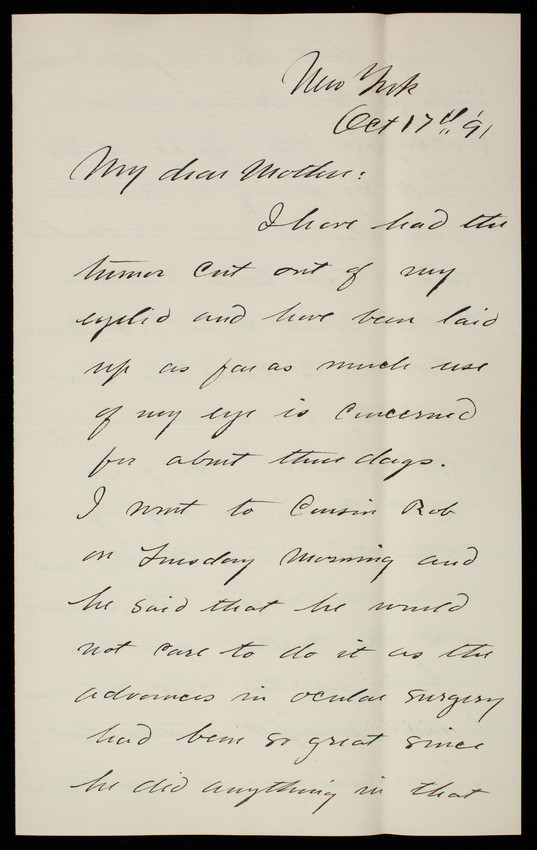 New York
Oct 17th '91
My dear Mother:
I have had the
tumor cut out of my
eyelid and have been laid
up as far as much use
of my eye is concerned
for about three days.
I went to Cousin Rob
on Tuesday morning and
he said that he would
not care to do it as the
advances in ocular surgery
had been so great since
he did anything in that